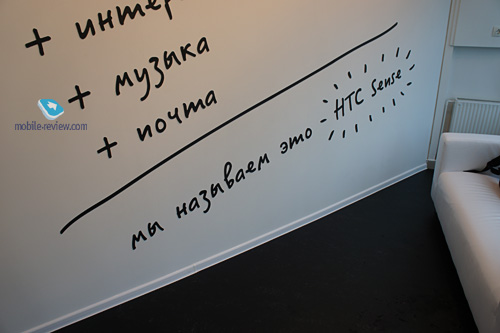 + музыка
mobile-review.com
+ почта
мы называем это - HTC Sense